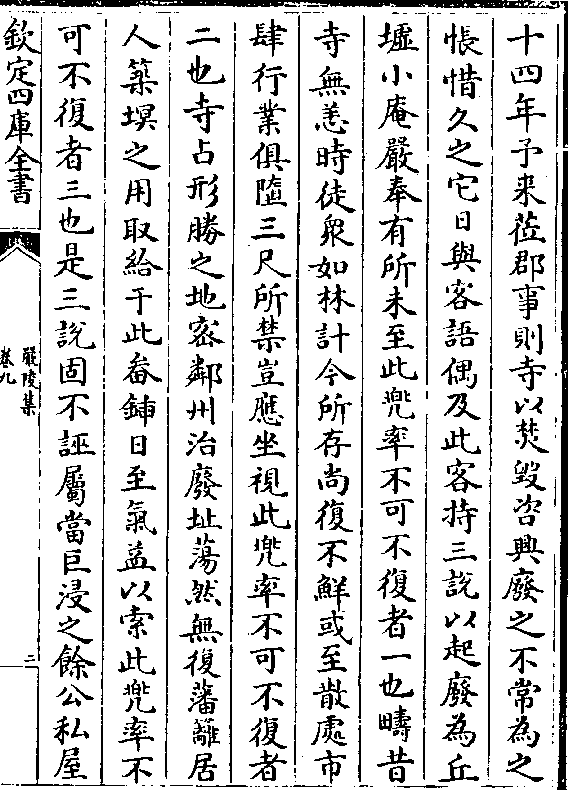 十四年予来莅郡事則寺以焚毀咨興廢之不常為之
悵惜久之它日與客語偶及此客持三說以起廢為丘
墟小庵嚴奉有所未至此兜率不可不復者一也疇昔
寺無恙時徒衆如林計今所存尚復不鮮或至散處市
肆行業俱隳三尺所禁豈應坐視此兜率不可不復者
二也寺占形勝之地密鄰州治廢址蕩然無復藩籬居
人築塓之用取給于此畚鍤日至氣益以索此兜率不
可不復者三也是三說固不誣屬當巨浸之餘公私屋
欽定四庫全書
嚴陵集
卷九
二